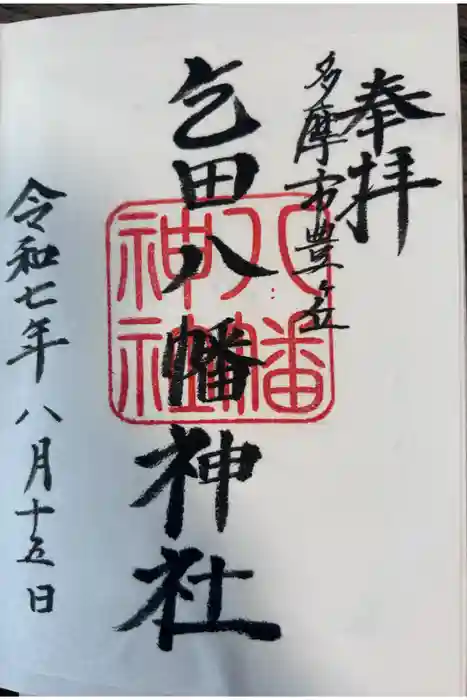 奉拝
多摩市豊ヶ丘
乞田八幡神社
八幡
神社
令和七年八月十五日